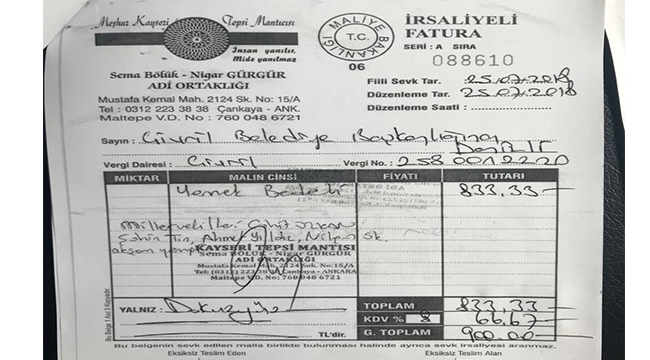 Meşhur Kayseri Tepsi Mantıcısı
İnsan yanılır,
Mide yanılmaz
Sema Bölük - Nigar GÜRGÜR
ADİ ORTAKLIĞI
Mustafa Kemal Mah. 2124 Sk. No: 15/A
Tel : 0312 223 38 38 Çankaya - ANK.
Maltepe V.D. No : 760 048 6721
MALİYE BAKANLIĞI
T.C.
06
İRSALİYELİ
FATURA
SERİ : A SIRA
088610
Fiili Sevk Tar. : 25.07.2018
Düzenleme Tar. : 25.07.2018
Düzenleme Saati :
Sayın : Çivril Belediye Başkanlığına
Denizli
Vergi Dairesi : Çivril Vergi No. : 2580012220
MİKTAR MALIN CİNSİ FİYATI TUTARI
Yemek Bedeli 833.33
Milletvekilleri
Şahin Tin, Ahmet Yıldız, Nilgün
akşam
KAYSERİ TEPSİ MANTISI
Sema BÖLÜK - Nigar GÜRGÜR
ADİ ORTAKLIĞI
Mustafa Kemal Mah. 2124 Sk. No:15/A
Tel:(0312) 223 38 38 Çankaya - ANKARA
Maltepe VD: 760 048 6721
YALNIZ: Dokuzyüz
TL'dir.
TOPLAM 833.33
KDV % 8 66.67
G. TOPLAM 900.00
Bu belgenin sevk edilen malla birlikte bulunması halinde ayrıca sevk irsaliyesi aranmaz.
Eksiksiz Teslim Eden Eksiksiz Teslim Alan